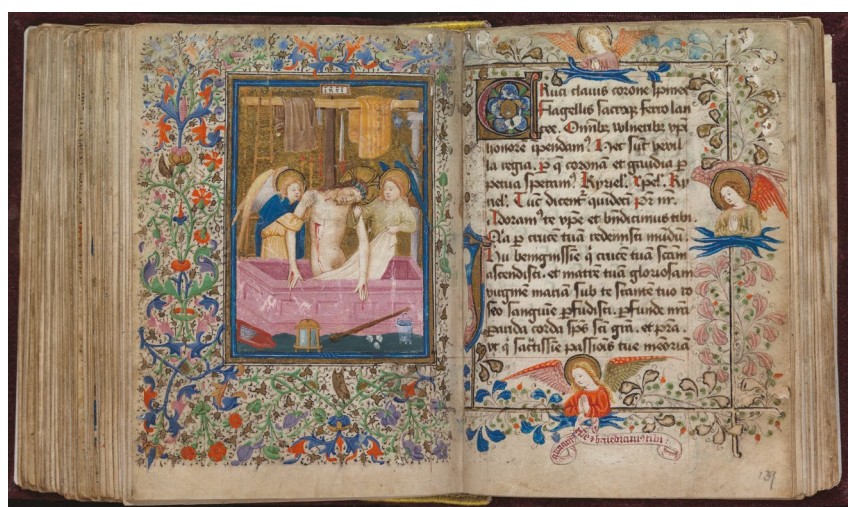 INRI
Cruci clavis corone spinee
flagellis sacraq ferro lan
cee. Omnibz vulneribz xpi
honore ipendam? Hec sut vexil
la regia. p q coronā et gaudia p
petua speram? Kyriel. xpel. Ky
riel. Tūc dicent quidecī pr nr.
Adoram? te xpe et bndicimus tibi.
Qa p crucē tuā redemisti mūdū.
Ihu benignissie q crucē tuā scām
ascendisti. et matrē tuā gloriosam
virgine mariā sub te stante tuo ro
seo sanguie pfudisti. pfunde nrā
parida corda sps sci grā. et pra.
vt q sactissie passiois tue meoriā
adoram? te xpe et benedicimus tibi
139